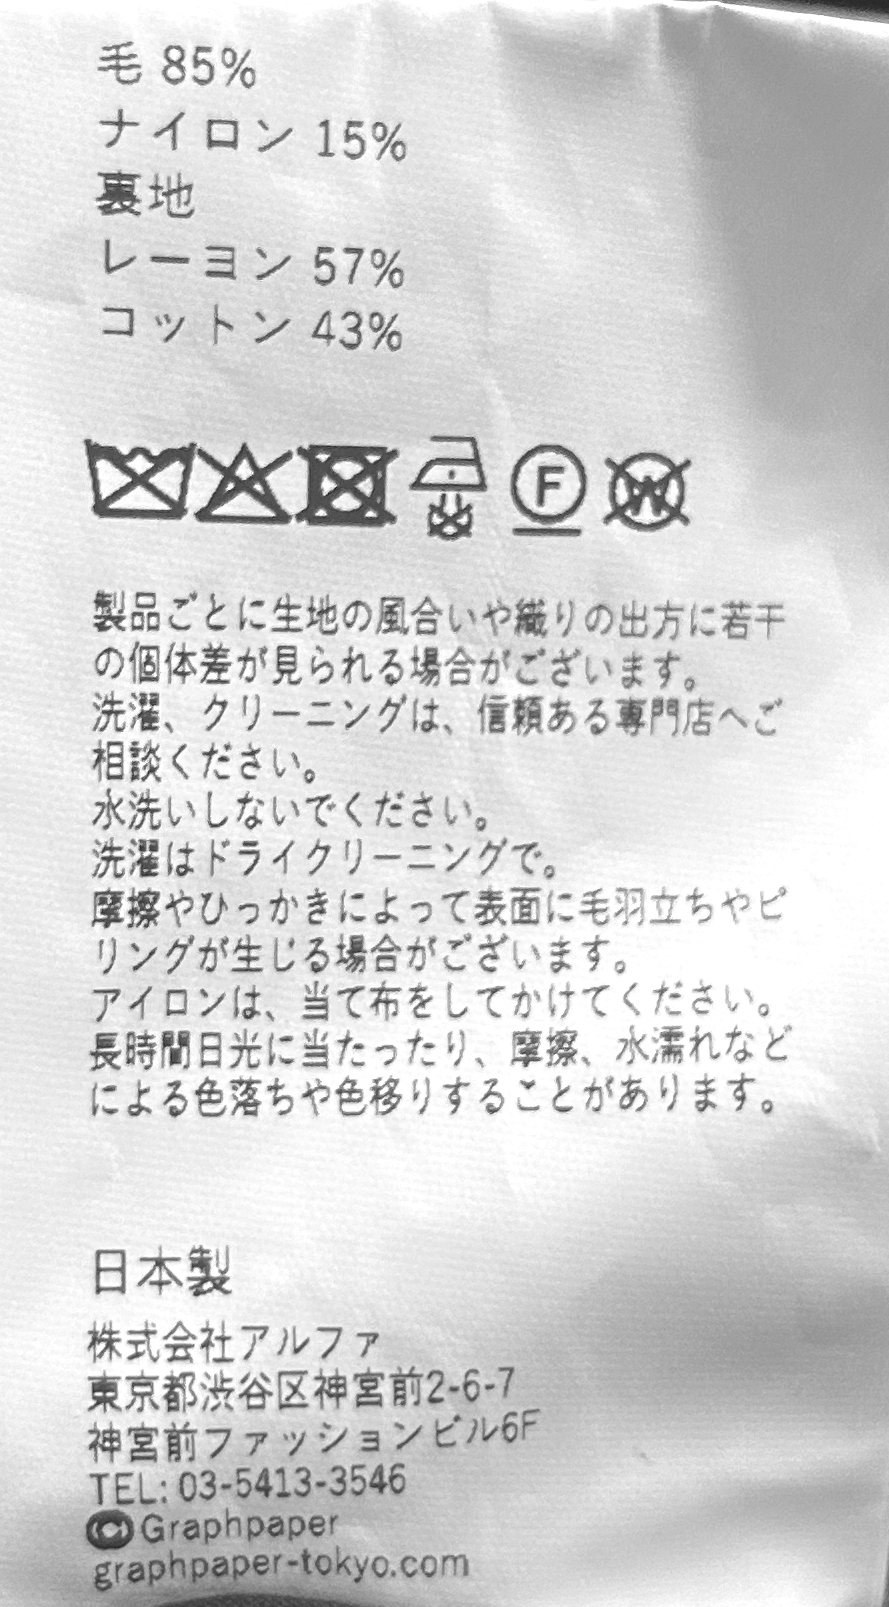 毛 85%
ナイロン 15%
裏地
レーヨン 57%
コットン 43%
F W
製品ごとに生地の風合いや織りの出方に若干
の個体差が見られる場合がございます。
洗濯、クリーニングは、信頼ある専門店へご
相談ください。
水洗いしないでください。
洗濯はドライクリーニングで。
摩擦やひっかきによって表面に毛羽立ちやピ
リングが生じる場合がございます。
アイロンは、当て布をしてかけてください。
長時間日光に当たったり、摩擦、水濡れなど
による色落ちや色移りすることがあります。
日本製
株式会社アルファ
東京都渋谷区神宮前2-6-7
神宮前ファッションビル6F
TEL: 03-5413-3546
Graphpaper
graphpaper-tokyo.com